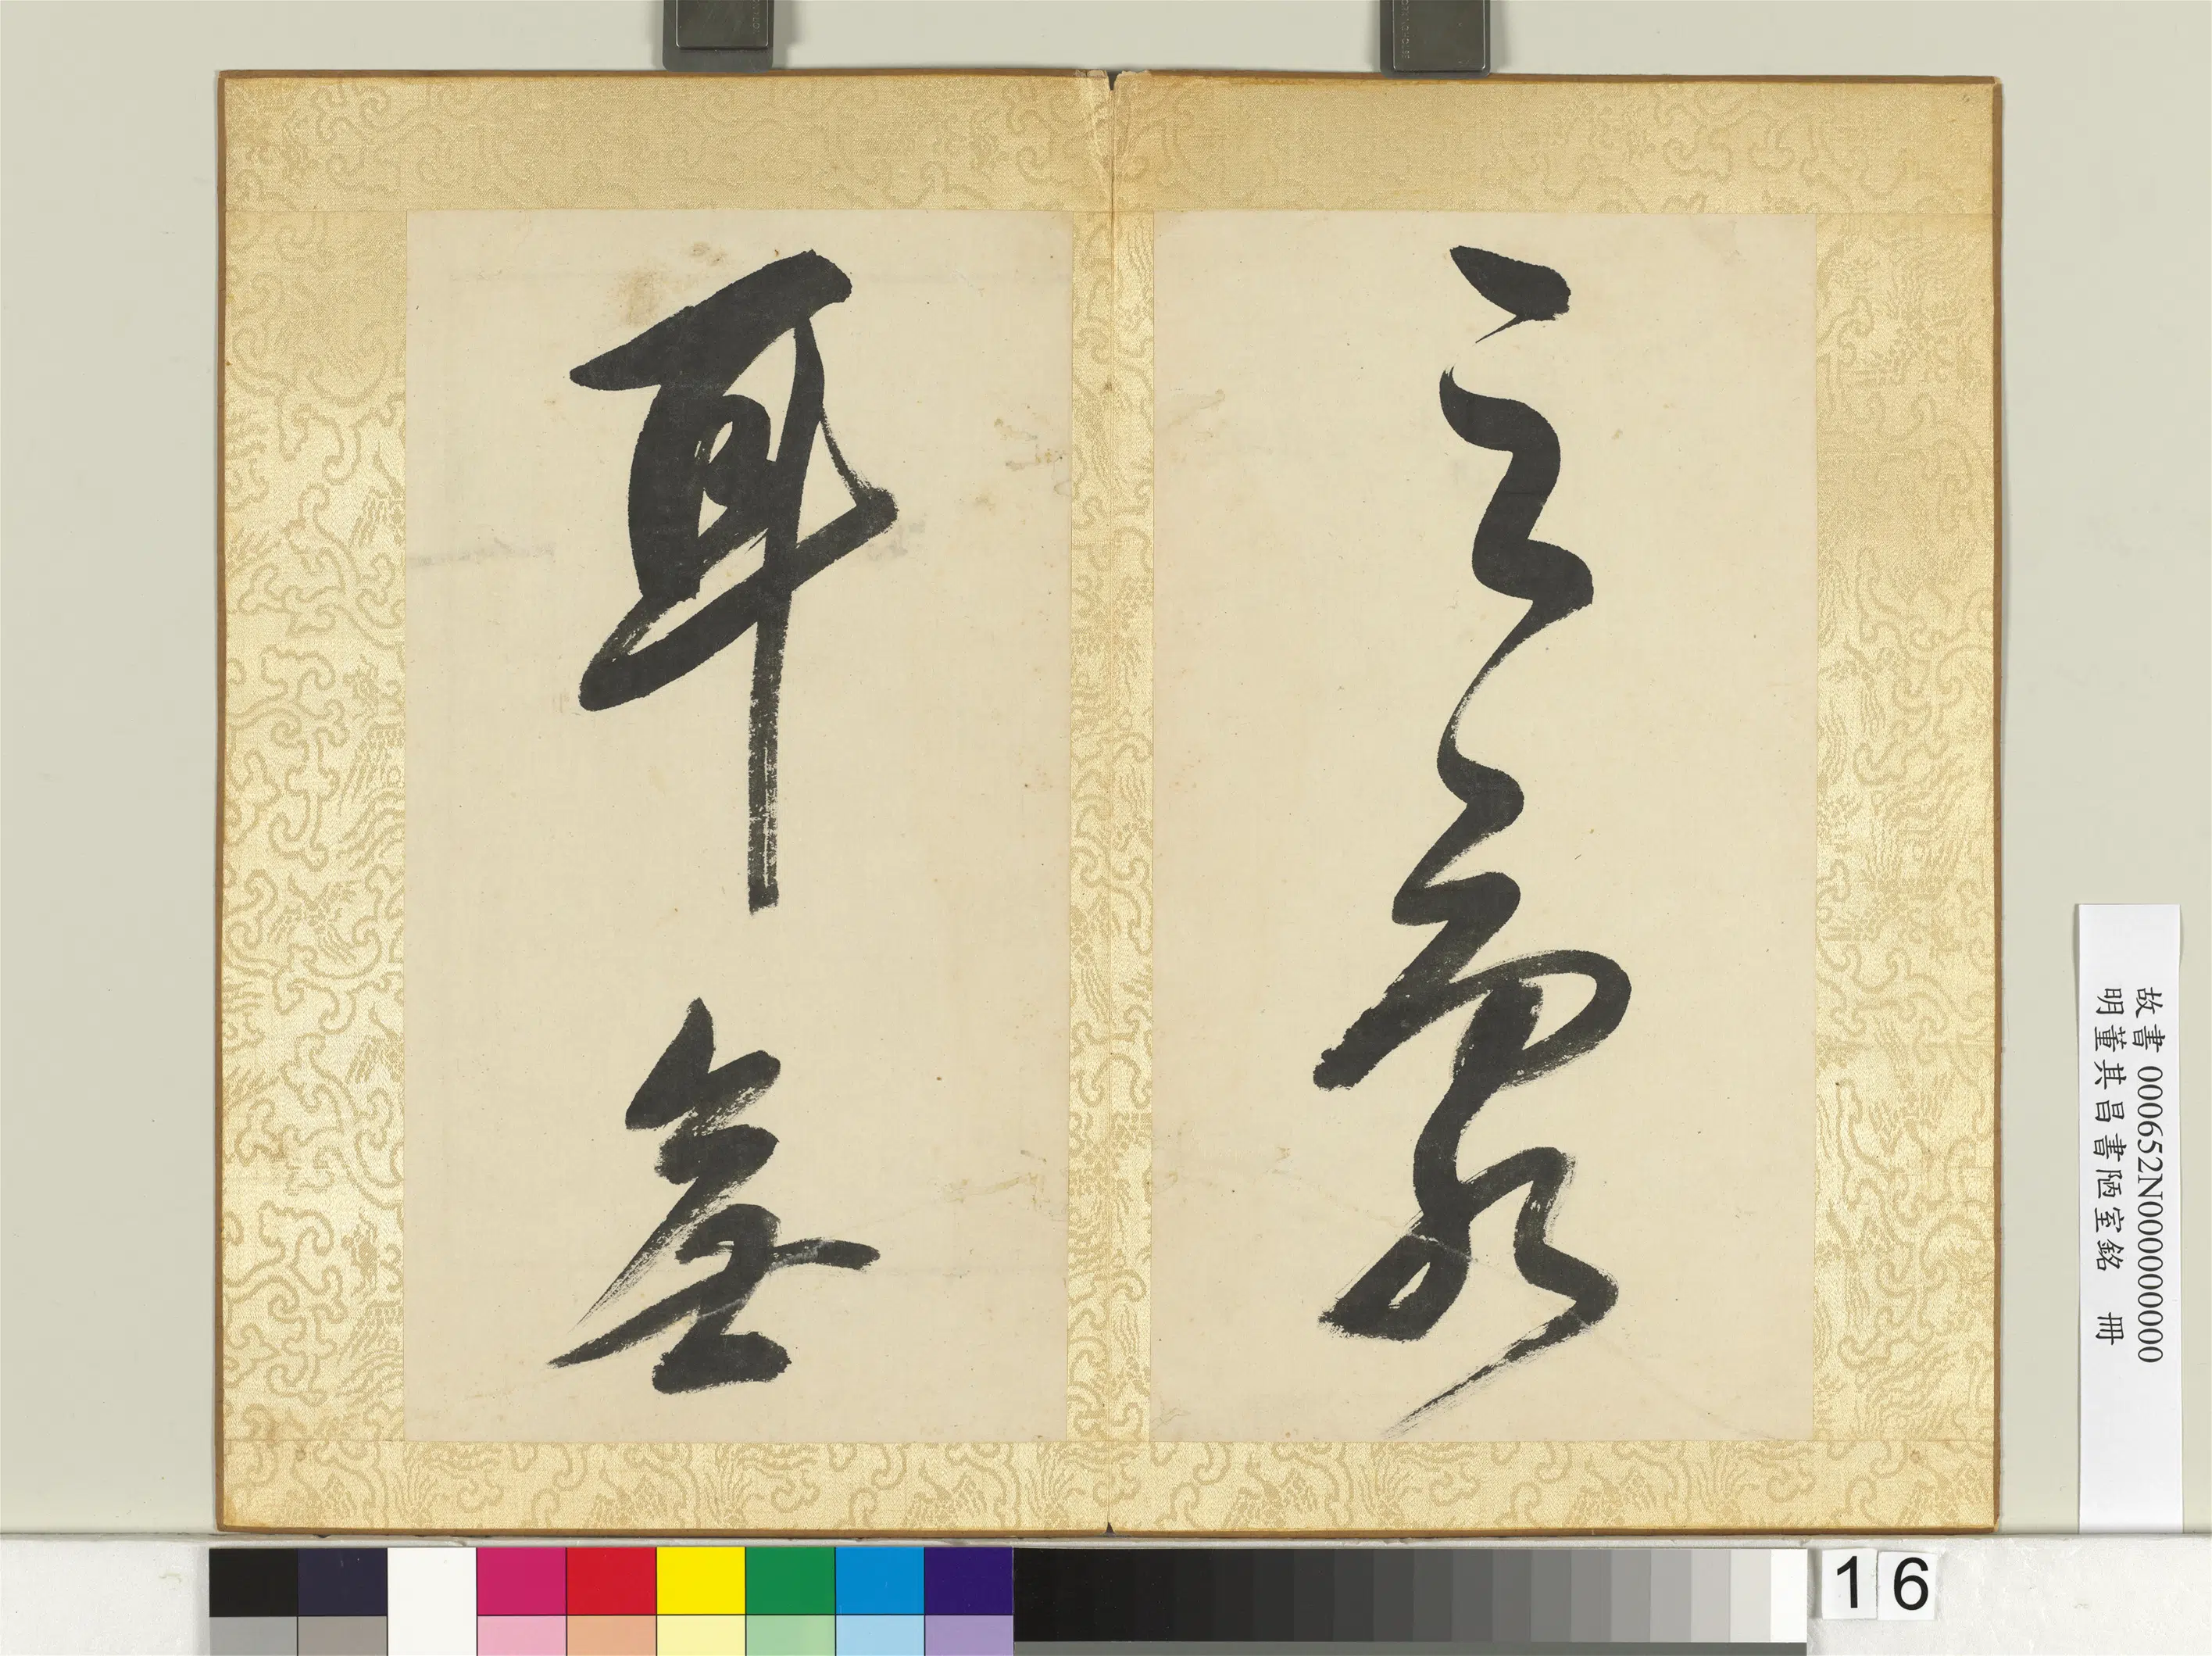 之亂
耳無
故書 000652N000000000
明董其昌書陋室銘 冊
16